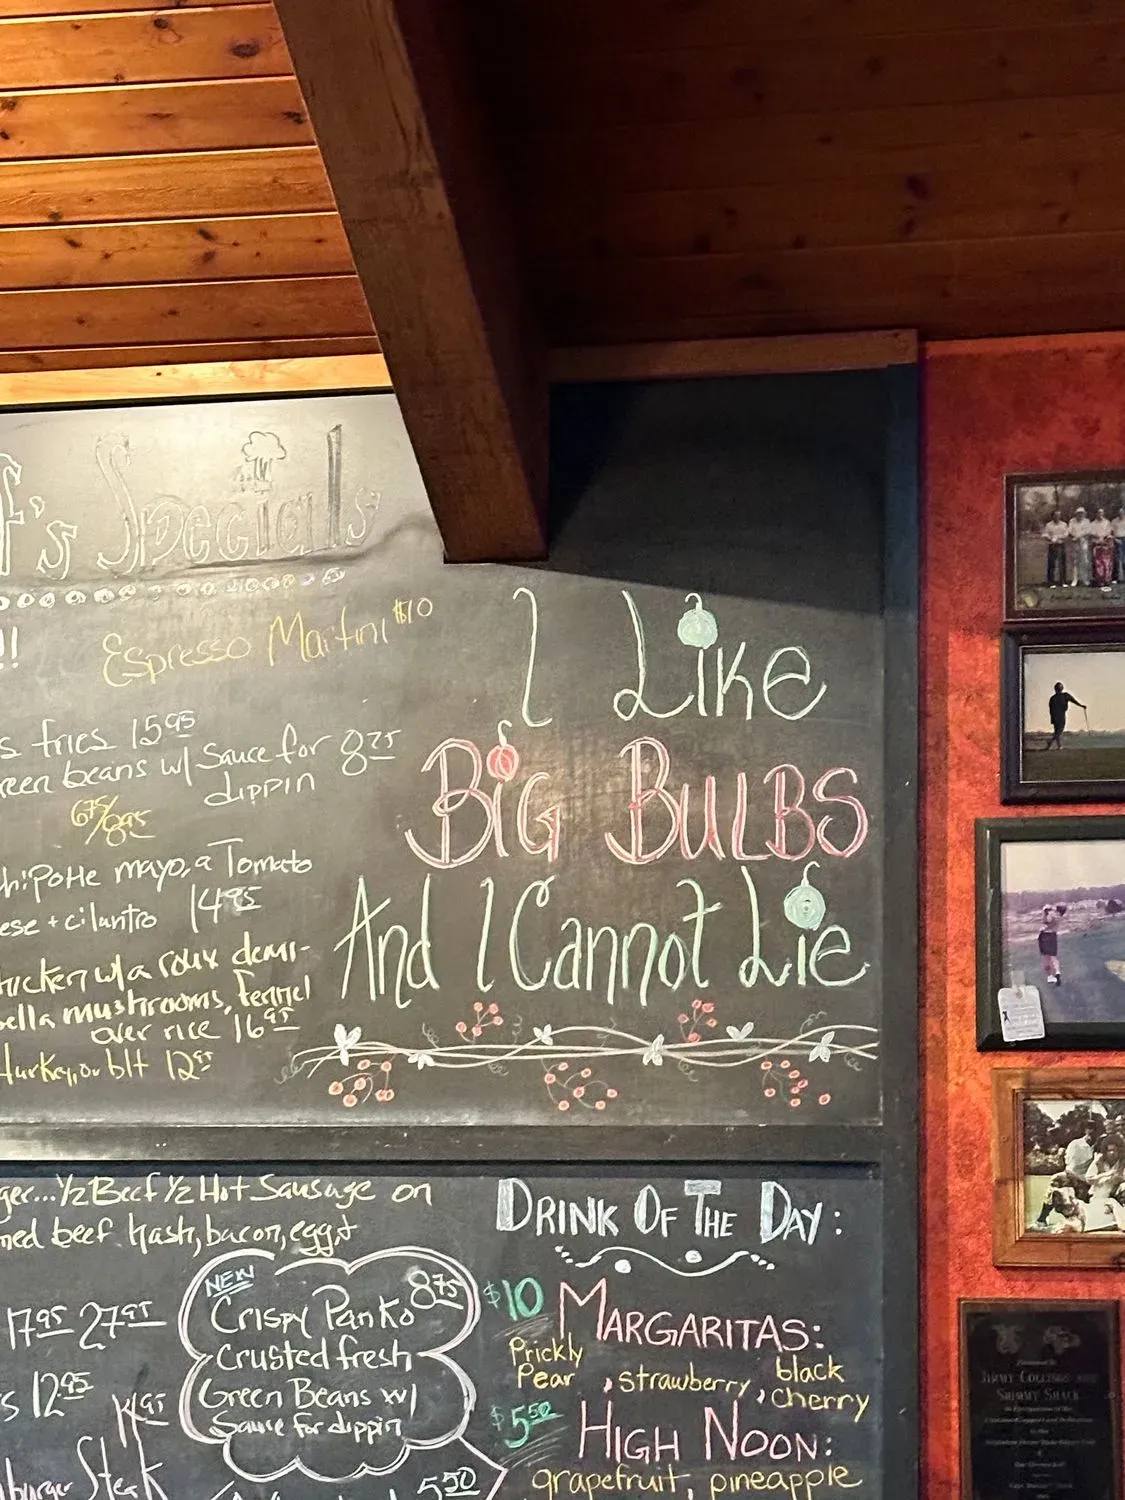 's Specials
!!
Espresso Martini $10
s fries 15 95
reen beans w/ Sauce for 8 75
dippin
6 75/8 95
hipotle mayo, a Tomato
ese + cilantro 14 95
hicken w/ a roux demi-
bella mushrooms, fennel
over rice 16 95
turkey, or blt 12 95
I Like
BiG BULBS
And I Cannot Lie
ger... 1/2 Beef 1/2 Hot Sausage on
ned beef hash, bacon, egg, +
17 95 27 95
s 12 95
14 95
burger Steak
NEW
Crispy Panko 8 75
Crusted fresh
Green Beans w/
Sauce for dippin
5 50
DRINK OF THE DAY:
$10 MARGARITAS:
Prickly Pear, strawberry, black cherry
$5 50 HIGH NOON:
grapefruit, pineapple
JIMMY COLLINS
SHIMMY SHACK